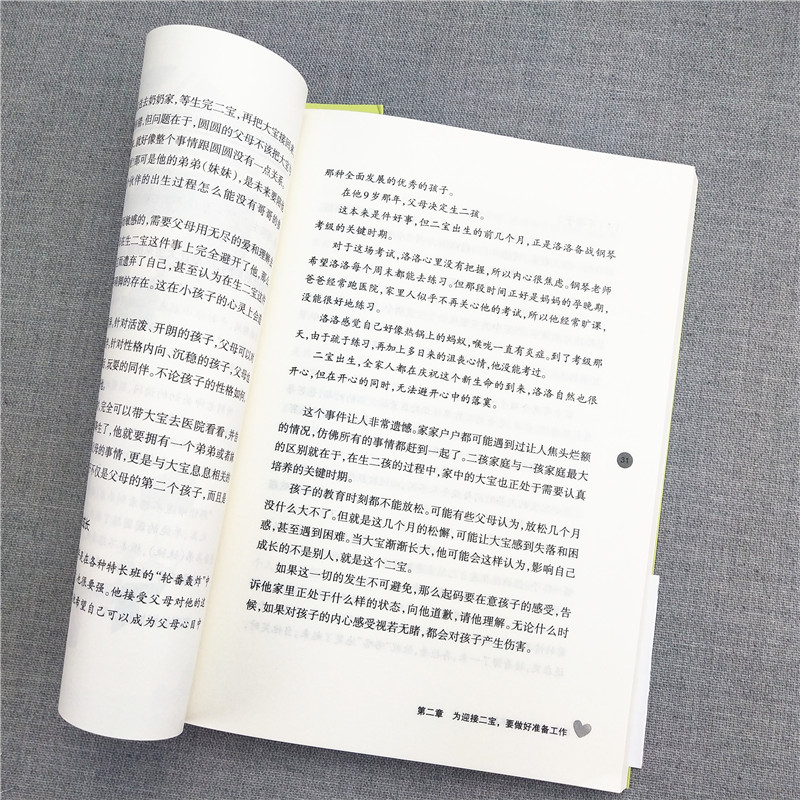 去奶奶家，等生完二宝，再把大宝接回
，但问题在于，圆圆的父母不该把大宝
就好像整个事情跟圆圆没有一点关系。
都可是他的弟弟（妹妹），是未来要陪
伙伴的出生过程怎么能没有哥哥的
敏感的，需要父母用无尽的爱和理解
在生二宝这件事上完全避开了他，那
而遗弃了自己，甚至认为在生二宝这
的存在。这在小孩子的心灵上会
针对活泼、开朗的孩子，父母可以
针对性格内向、沉稳的孩子，父母
玩耍的同伴。不论孩子的性格如何
完全可以带大宝去医院看看，并
生了，他就要拥有一个弟弟或者
母的事情，更是与大宝息息相关的
不仅是父母的第二个孩子，而且是
张
现在各种特长班的“轮番轰炸”中
也很要强。他接受父母对他的这
希望自己可以成为父母心目中
那种全面发展的优秀的孩子。
在他9岁那年，父母决定生二孩。
这本来是件好事，但二宝出生的前几个月，正是洛洛备战钢琴
考级的关键时期。
对于这场考试，洛洛心里没有把握，所以内心很焦虑。钢琴老师
希望洛洛每个周末都能去练习。但那段时间正好是妈妈的孕晚期，
爸爸经常跑医院，家里人似乎不再关心他的考试，所以他经常旷课，
没能很好地练习。
洛洛感觉自己好像热锅上的蚂蚁，喉咙一直有炎症。到了考级那
天，由于疏于练习，再加上多日来的沮丧心情，他没能考过。
二宝出生，全家人都在庆祝这个新生命的到来，洛洛自然也很
开心，但在开心的同时，无法避开心中的落寞。
这个事件让人非常遗憾。家家户户都可能遇到过让人焦头烂额
的情况，仿佛所有的事情都赶到一起了。二孩家庭与一孩家庭最大
的区别就在于，在生二孩的过程中，家中的大宝也正处于需要认真
培养的关键时期。
孩子的教育时刻都不能放松。可能有些父母认为，放松几个月
没什么大不了。但就是这几个月的松懈，可能让大宝感到失落和困
惑，甚至遇到困难。当大宝渐渐长大，他可能会这样认为，影响自己
成长的不是别人，就是这个二宝。
如果这一切的发生不可避免，那么起码要在意孩子的感受，告
诉他家里正处于什么样的状态，向他道歉，请他理解。无论什么时
候，如果对孩子的内心感受视若无睹，都会对孩子产生伤害。
31
第二章 为迎接二宝，要做好准备工作